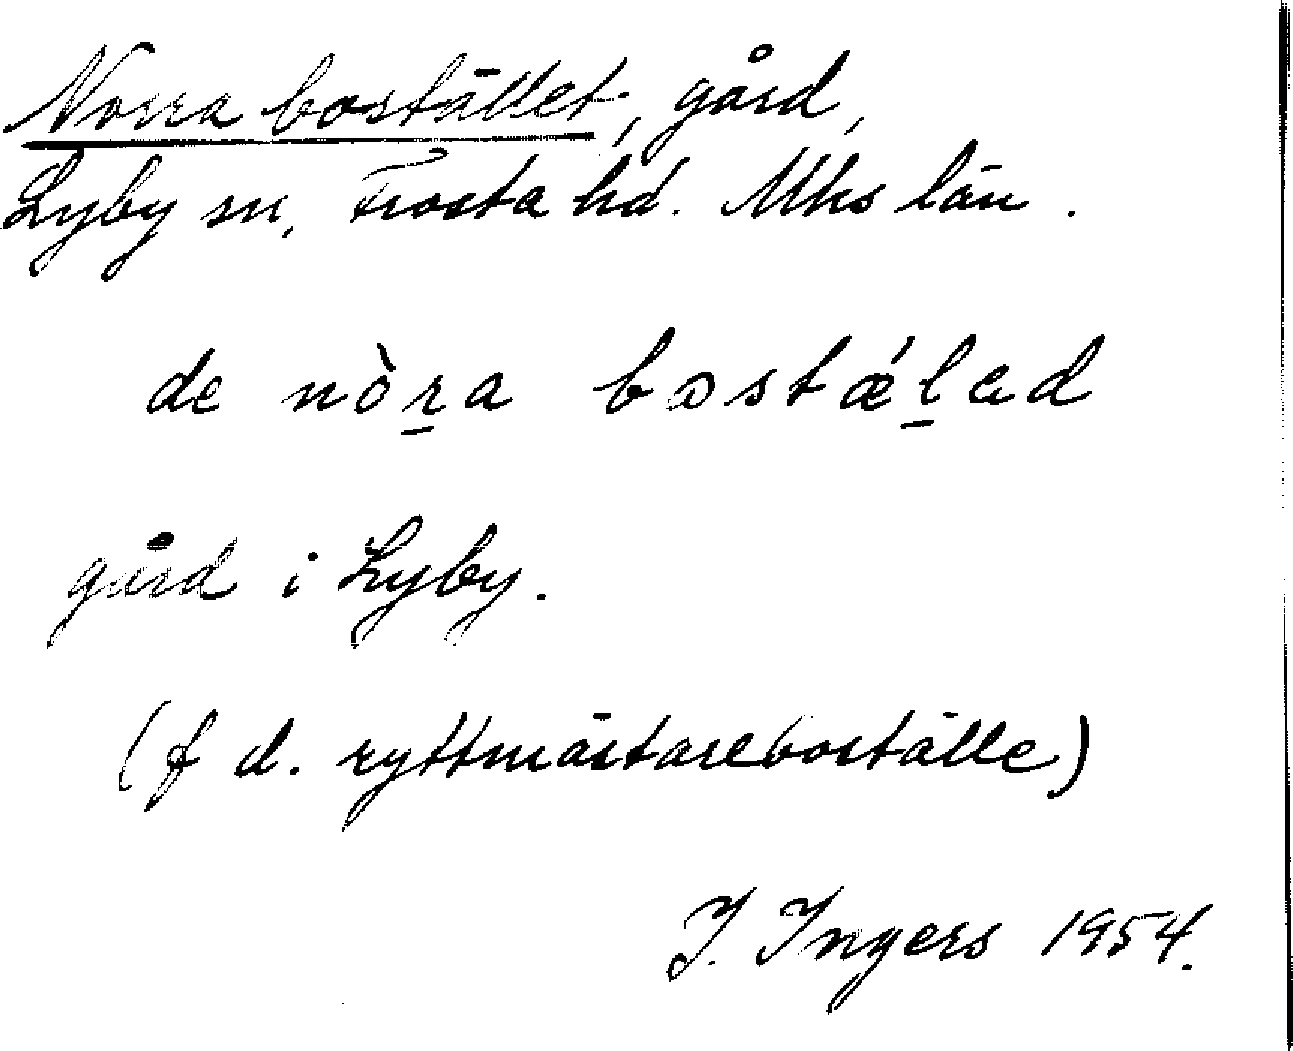 Norra bostället, gård,
Lyby sn, Frosta hd. Mhs län.
de nòr̠a bostǽl̠ad
gård i Lyby.
(f d. ryttmästareboställe)
I. Ingers 1954.